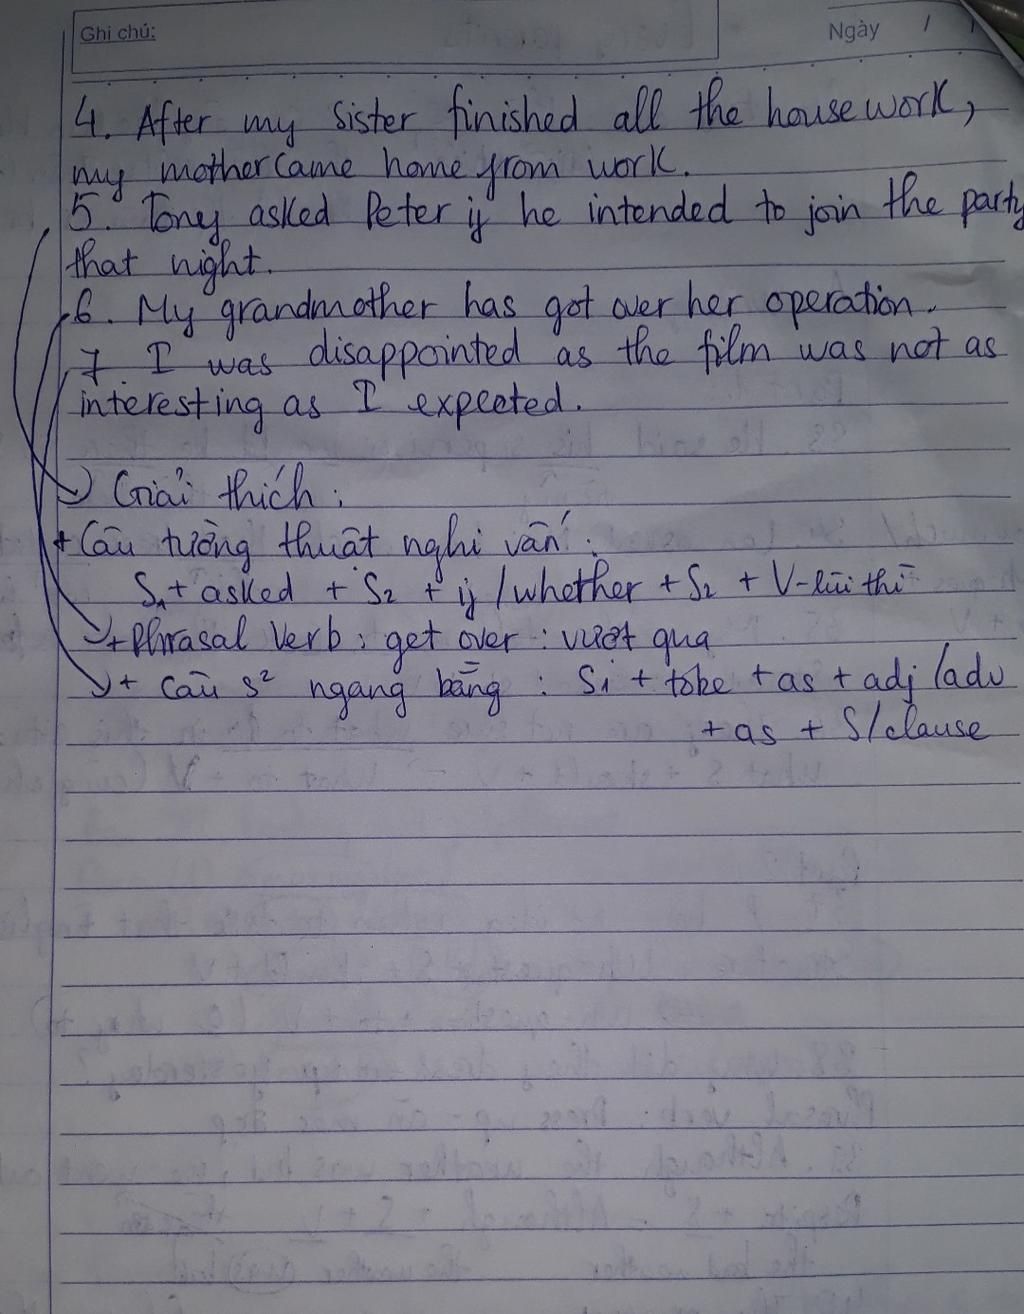 Ghi chú:
Ngày / /
4. After my sister finished all the housework,
my mother came home from work.
5. Tony asked Peter if he intended to join the party
that night.
6. My grandmother has got over her operation.
7 I was disappointed as the film was not as
interesting as I expected.
Giải thích:
+ Câu tường thuật nghi vấn:
S1 + asked + S2 + if/whether + S2 + V-lùi thì
+ Phrasal Verb: get over: vượt qua
+ Câu s² ngang bằng: S1 + tobe + as + adj/adv
+ as + S/clause